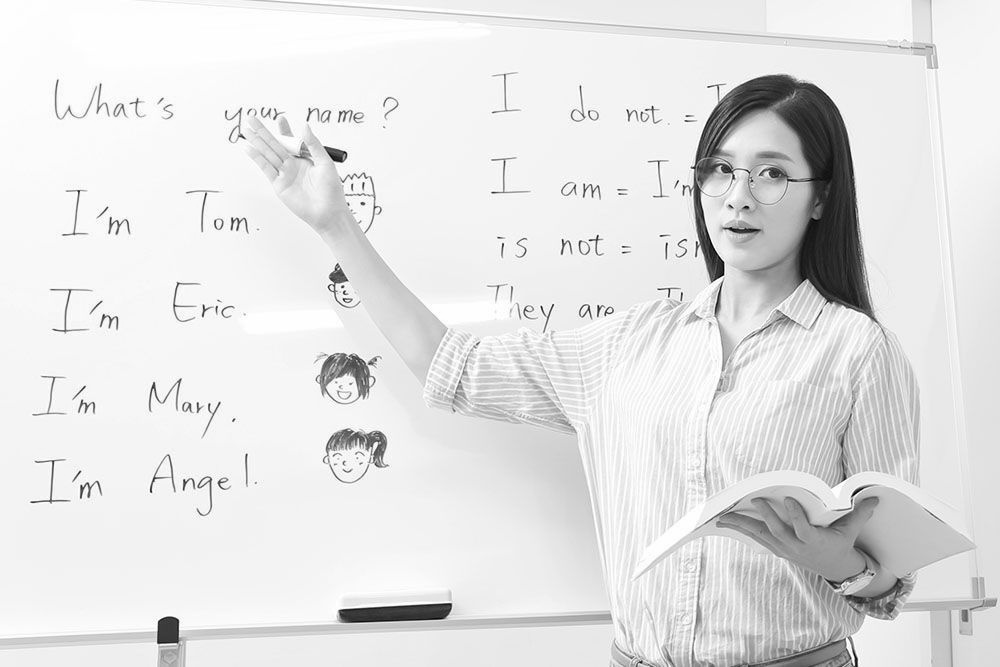 What's your name?
I'm Tom.
I'm Eric.
I'm Mary.
I'm Angel.
I do not. = I
I am = I'm
is not = isn
They are